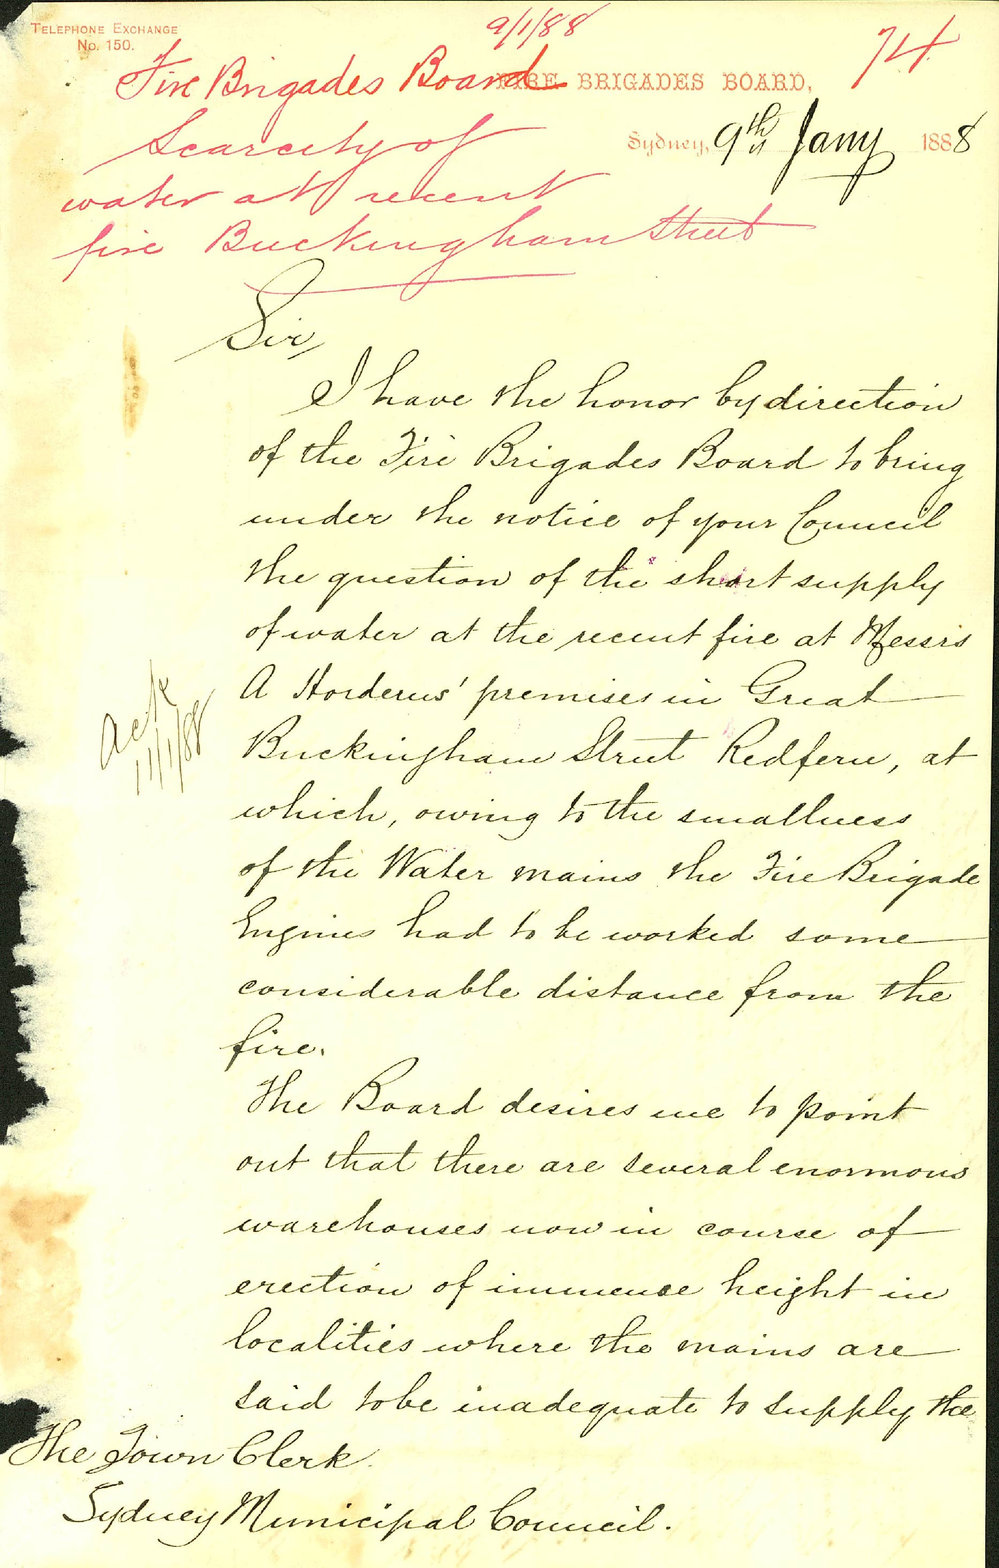 TELEPHONE EXCHANGE
No. 150.
9/1/88
74
Fire Brigades Board
FIRE BRIGADES BOARD,
Scarcity of
Sydney, 9th Jany 1888
water at recent
fire Buckingham Street
Sir,
I have the honor by direction
of the Fire Brigades Board to bring
under the notice of your Council
the question of the short supply
of water at the recent fire at Messrs
A Horderns' premises in Great
Buckingham Street Redfern, at
which, owing to the smallness
of the Water mains the Fire Brigade
Engines had to be worked some
considerable distance from the
fire.
Ack
11/1/88
The Board desires me to point
out that there are several enormous
warehouses now in course of
erection of immense height in
localities where the mains are
said to be inadequate to supply the
The Town Clerk.
Sydney Municipal Council.